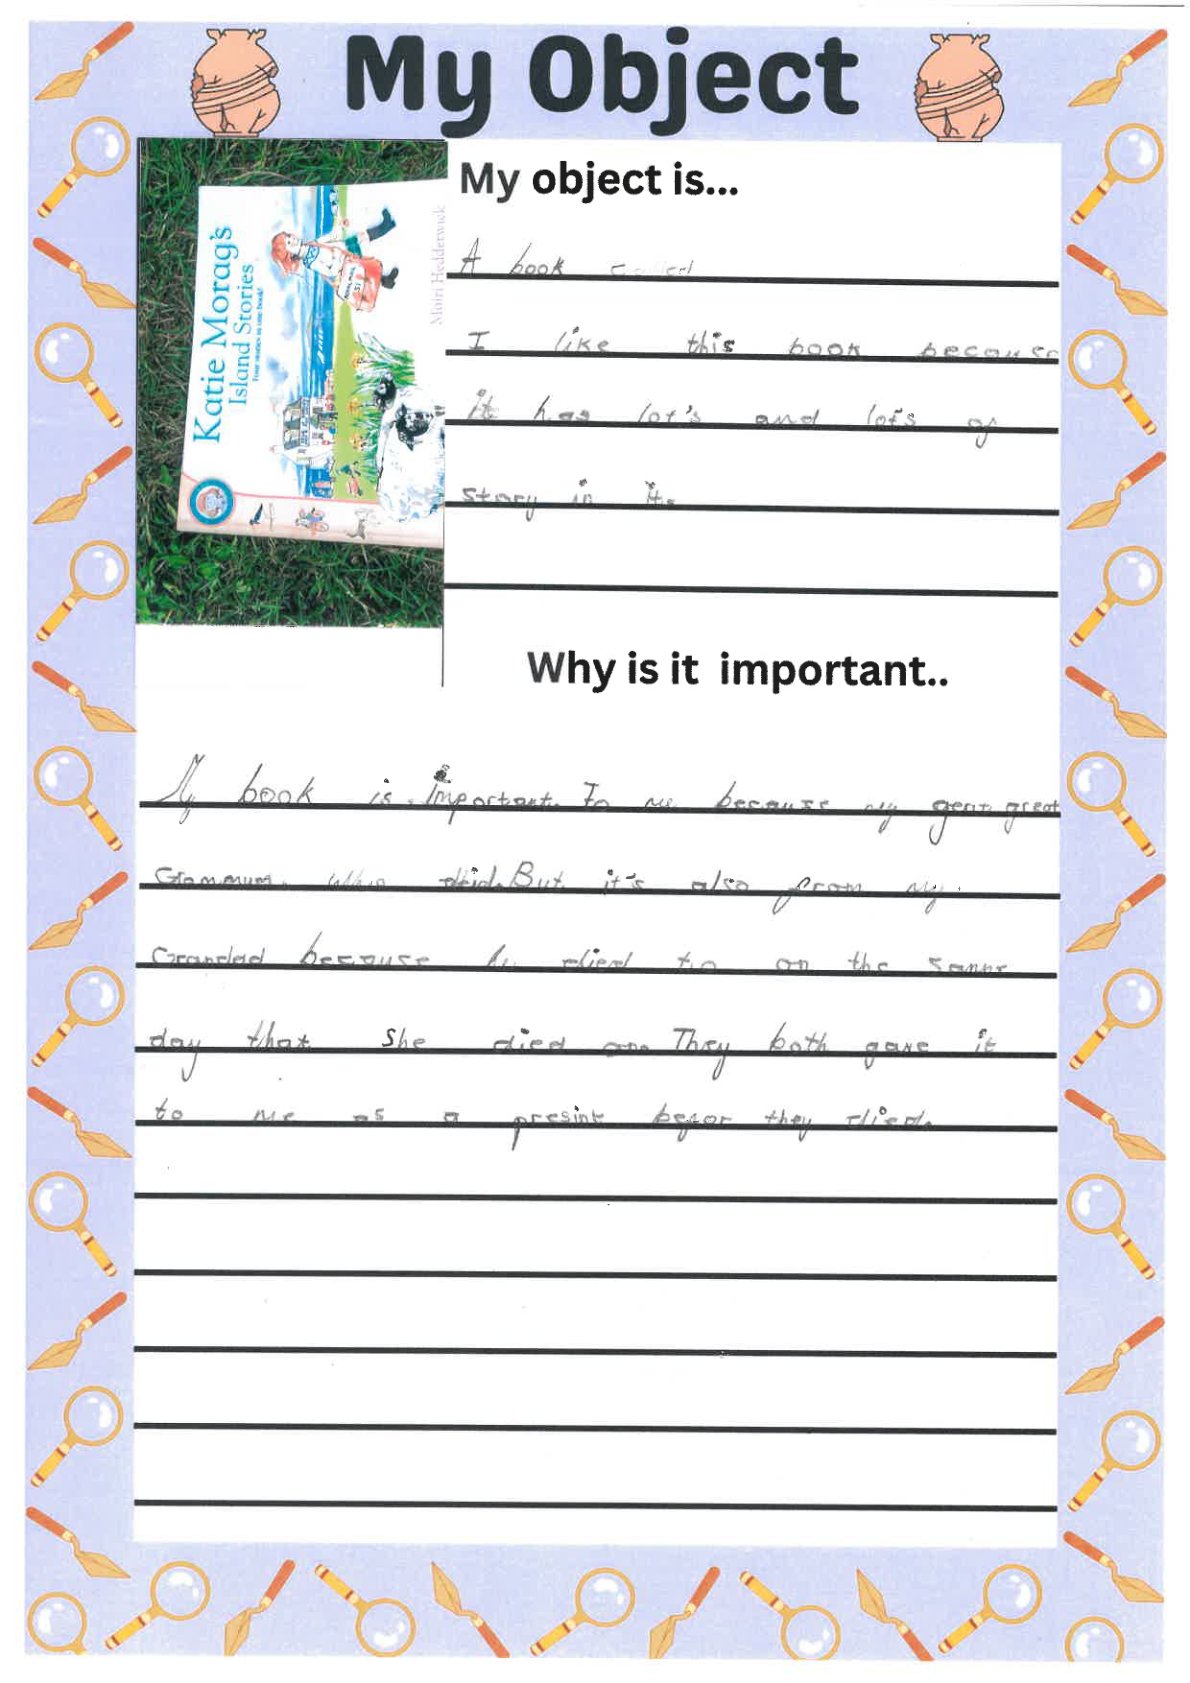 My Object
Katie Morag's
Island Stories
Four stories in one book!
Mairi Hedderwick
My object is...
A book called
I like this book because
it has lot's and lots of
story in it.
Why is it important..
My book is important To me because my great
Grammum who did. But it's also from my
Grandad because he died too on the same
day that she died on. They both gave it
to me as a presint befor they died.